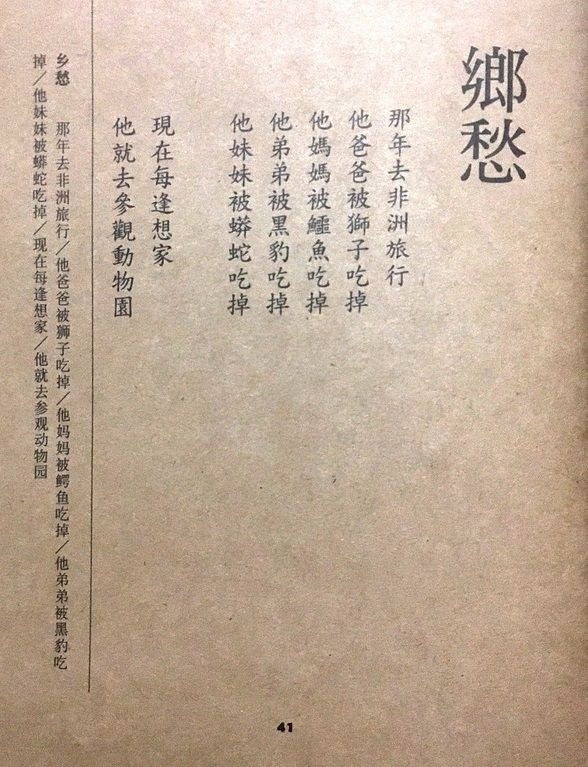 鄉愁
那年去非洲旅行
他爸爸被獅子吃掉
他媽媽被鱷魚吃掉
他弟弟被黑豹吃掉
他妹妹被蟒蛇吃掉
現在每逢想家
他就去參觀動物園
乡愁　那年去非洲旅行／他爸爸被狮子吃掉／他妈妈被鳄鱼吃掉／他弟弟被黑豹吃
掉／他妹妹被蟒蛇吃掉／现在每逢想家／他就去参观动物园
41